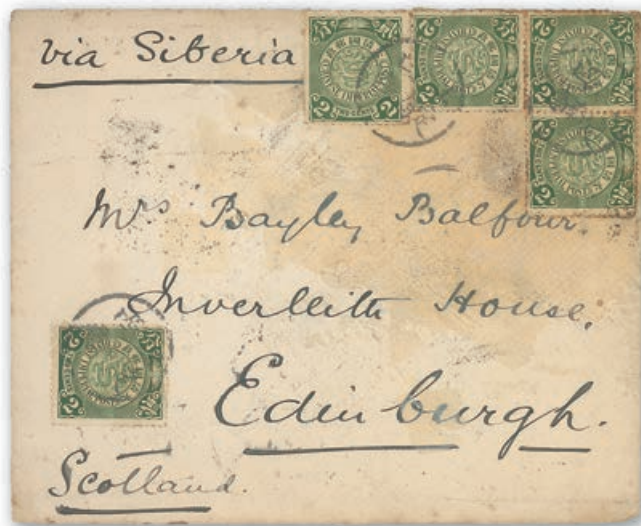 via Siberia
2 TWO CENTS 2
Mrs Bayley Balfour.
Inverleith House.
Edinburgh.
Scotland.